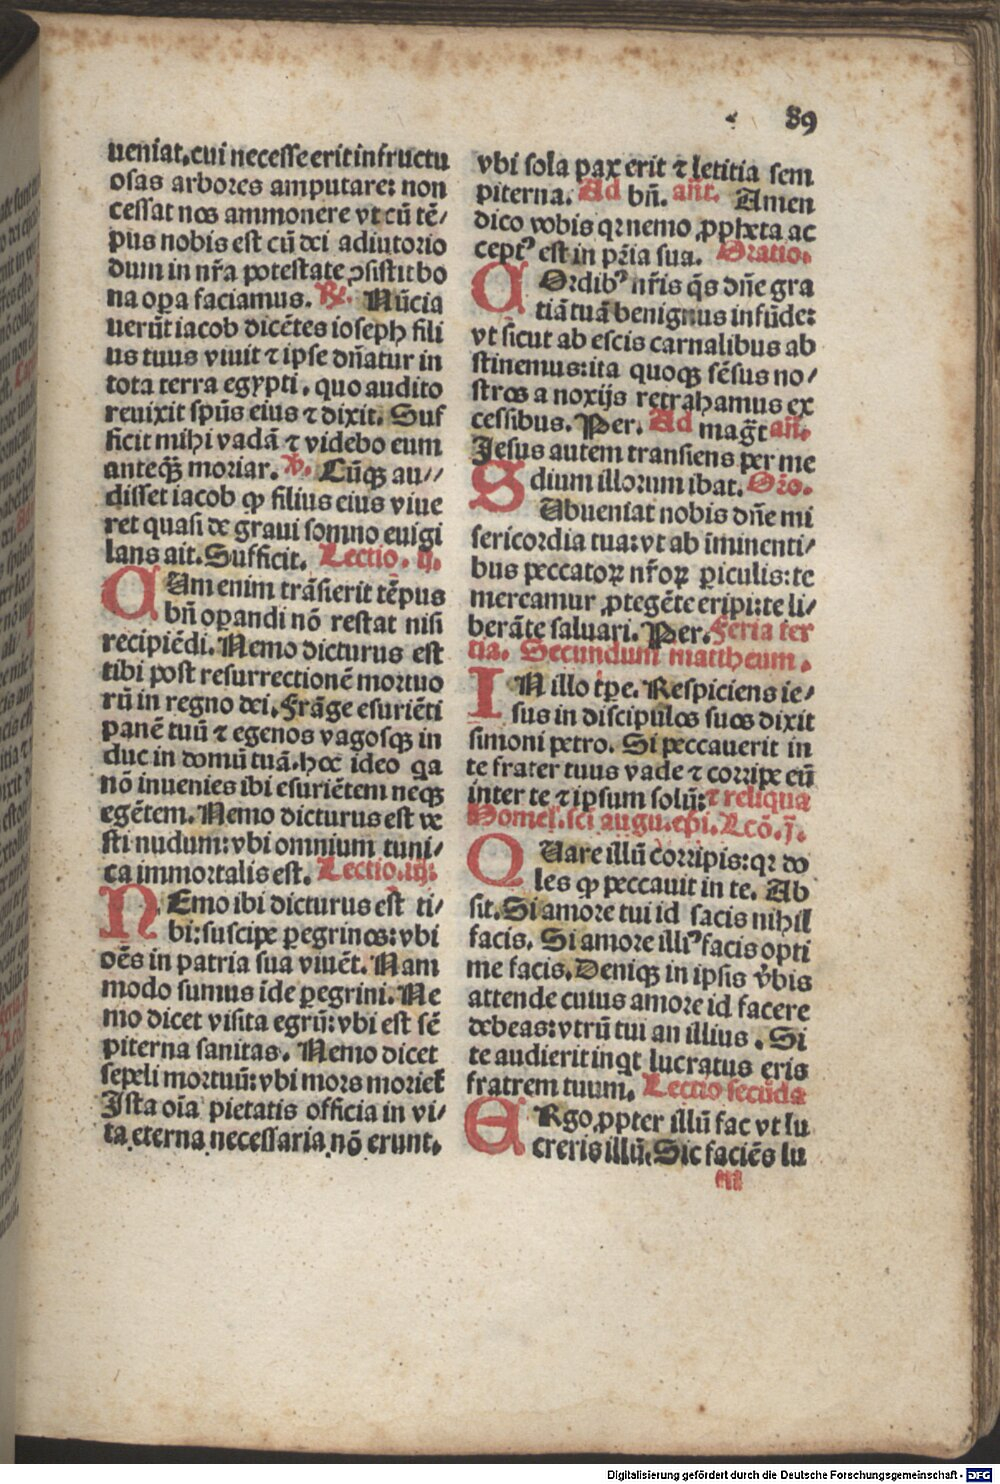 89
ueniat. cui necesse erit infructu
osas arbores amputare: non
cessat nos ammonere vt cū tē/
pus nobis est cū dei adiutorio
dum in nr̄a potestate ꝯsistit bo
na oꝑa faciamus. ℟. Nūcia
uerūt iacob dicētes ioseph fili
us tuus viuit ⁊ ipse dn̄atur in
tota terra egypti. quo audito
reuixit spūs eius ⁊ dixit. Suf
ficit mihi vadā ⁊ videbo eum
anteqꝫ̄ moriar. ℣. Cūqꝫ au//
disset iacob ꝙ filius eius viue
ret quasi de graui somno euigi
lans ait. Sufficit. Lectio. ij.
CUm enim trāsierit tēpus
bn̄ oꝑandi nō restat nisi
recipiēdi. Nemo dicturus est
tibi post resurrectionē mortuo
rū in regno dei. Frāge esuriēti
panē tuū ⁊ egenos vagosqꝫ in
duc in domū tuā. hoc ideo qa
nō inuenies ibi esuriētem neqꝫ
egētem. Nemo dicturus est ve
sti nudum: vbi omnium tuni/
ca immortalis est. Lectio. iij.
NEmo ibi dicturus est ti/
bi: suscipe ꝑegrinos: vbi
oēs in patria sua viuēt. Nam
modo sumus īde ꝑegrini. Ne
mo dicet visita egrū: vbi est sē
piterna sanitas. Nemo dicet
sepeli mortuū: vbi mors moriet̄
Ista oīa pietatis officia in vi/
ta eterna necessaria nō erunt.
vbi sola pax erit ⁊ letitia sem
piterna. Ad bn̄. an̄t. Amen
dico vobis qr nemo ꝓpheta ac
ceptꝰ est in pr̄ia sua. Oratio.
COrdibꝰ nr̄is q̄s dn̄e gra
tiā tuā benignus infūde:
vt sicut ab escis carnalibus ab
stinemus: ita quoqꝫ sēsus no/
stros a noxijs retrahamus ex
cessibus. Per. Ad maḡt an̄.
Jesus autem transiens per me
dium illorum ibat. Oro.
SUbueniat nobis dn̄e mi
sericordia tua: vt ab īminenti/
bus peccatoꝝ nr̄oꝝ ꝑiculis: te
mereamur ꝓtegēte eripi: te li/
berāte saluari. Per. Feria ter
tia. Secundum mattheum.
IN illo tꝑe. Respiciens ie/
sus in discipulos suos dixit
simoni petro. Si peccauerit in
te frater tuus vade ⁊ corripe eū
inter te ⁊ ipsum solū: ⁊ reliqua
Homel. sci augu. epi. Lcō. j.
QUare illū corripis: qr do
les ꝙ peccauit in te. Ab
sit. Si amore tui id facis nihil
facis. Si amore illiꝰ facis opti
me facis. Deniqꝫ in ipsis v̄bis
attende cuius amore id facere
debeas: vtrū tui an illius. Si
te audierit inqt lucratus eris
fratrem tuum. Lectio secūda
ERgo ꝓpter illū fac vt lu
creris illū. Sic faciēs lu
m
Digitalisierung gefördert durch die Deutsche Forschungsgemeinschaft - DFG